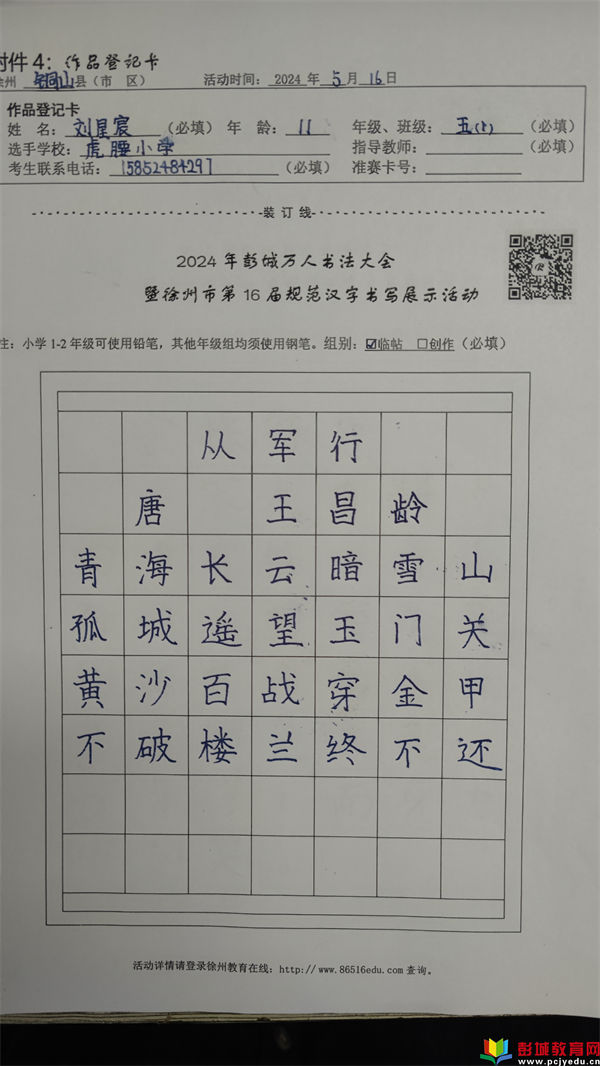 附件4：作品登记卡
徐州 铜山 县（市 区） 活动时间：2024 年 5 月 16 日
作品登记卡
姓 名：刘星宸（必填）年 龄：11 年级、班级：五（（必填）
选手学校：虎腰小学 指导教师：（必填）
考生联系电话：15852484297（必填） 准赛卡号：
装 订 线
2024 年彭城万人书法大会
暨徐州市第 16 届规范汉字书写展示活动
注：小学 1-2 年级可使用铅笔，其他年级组均须使用钢笔。组别：☑临帖 □创作（必填）
从军行
唐 王昌龄
青海长云暗雪山
孤城遥望玉门关
黄沙百战穿金甲
不破楼兰终不还
活动详情请登录徐州教育在线：http://www.86516edu.com 查询。
彭城教育网
www.pcjyedu.cn